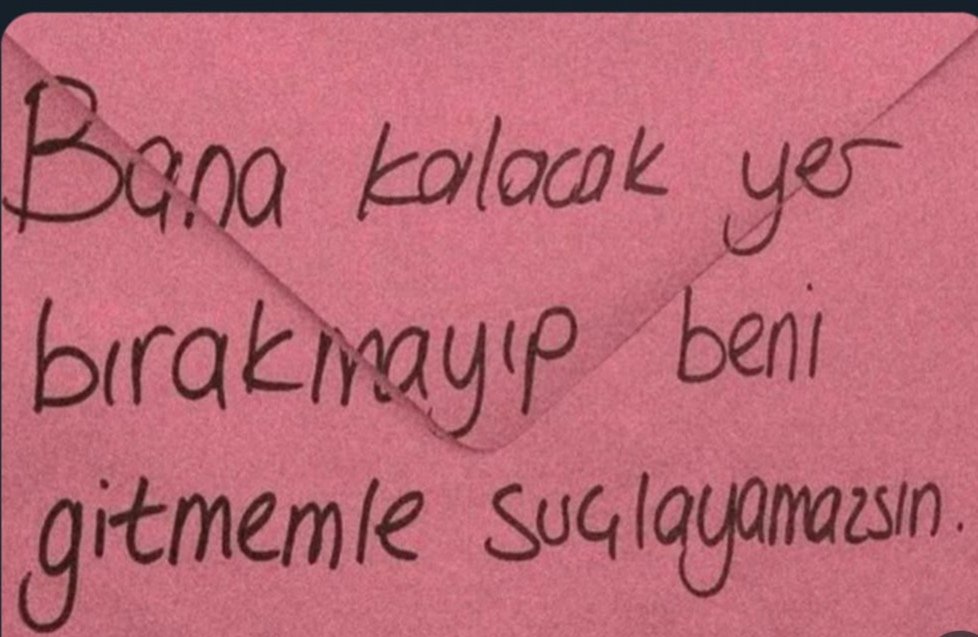 Bana kalacak yer
bırakmayıp beni
gitmemle suçlayamazsın.